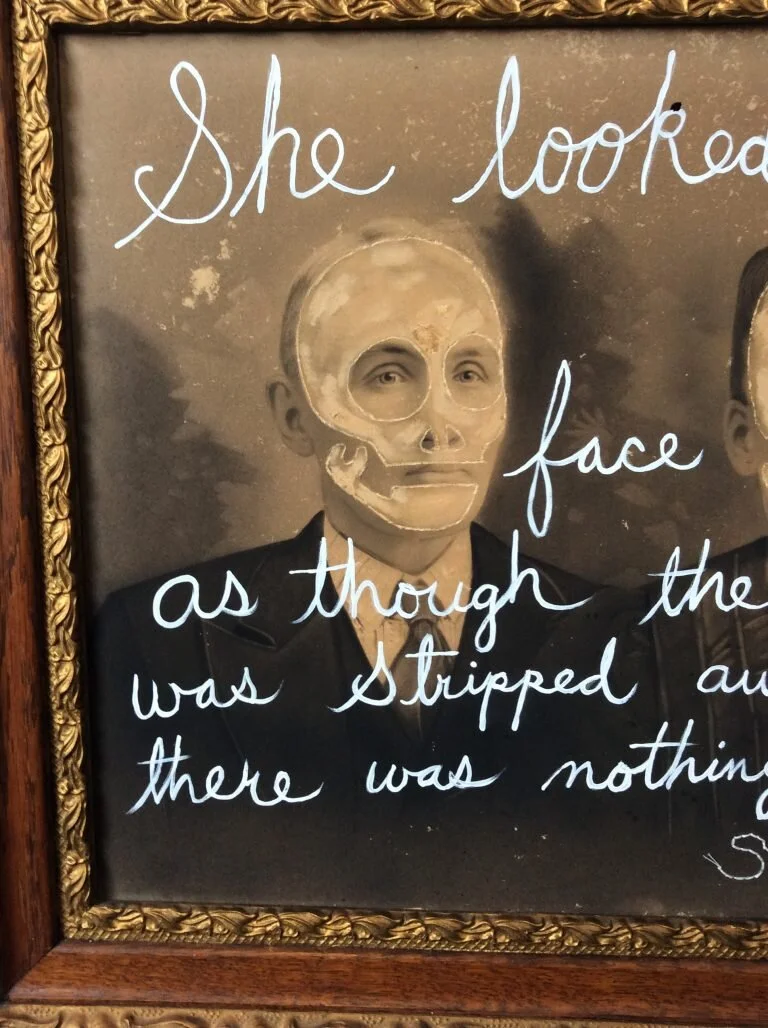 She looked
face
as though the
was stripped
there was nothing